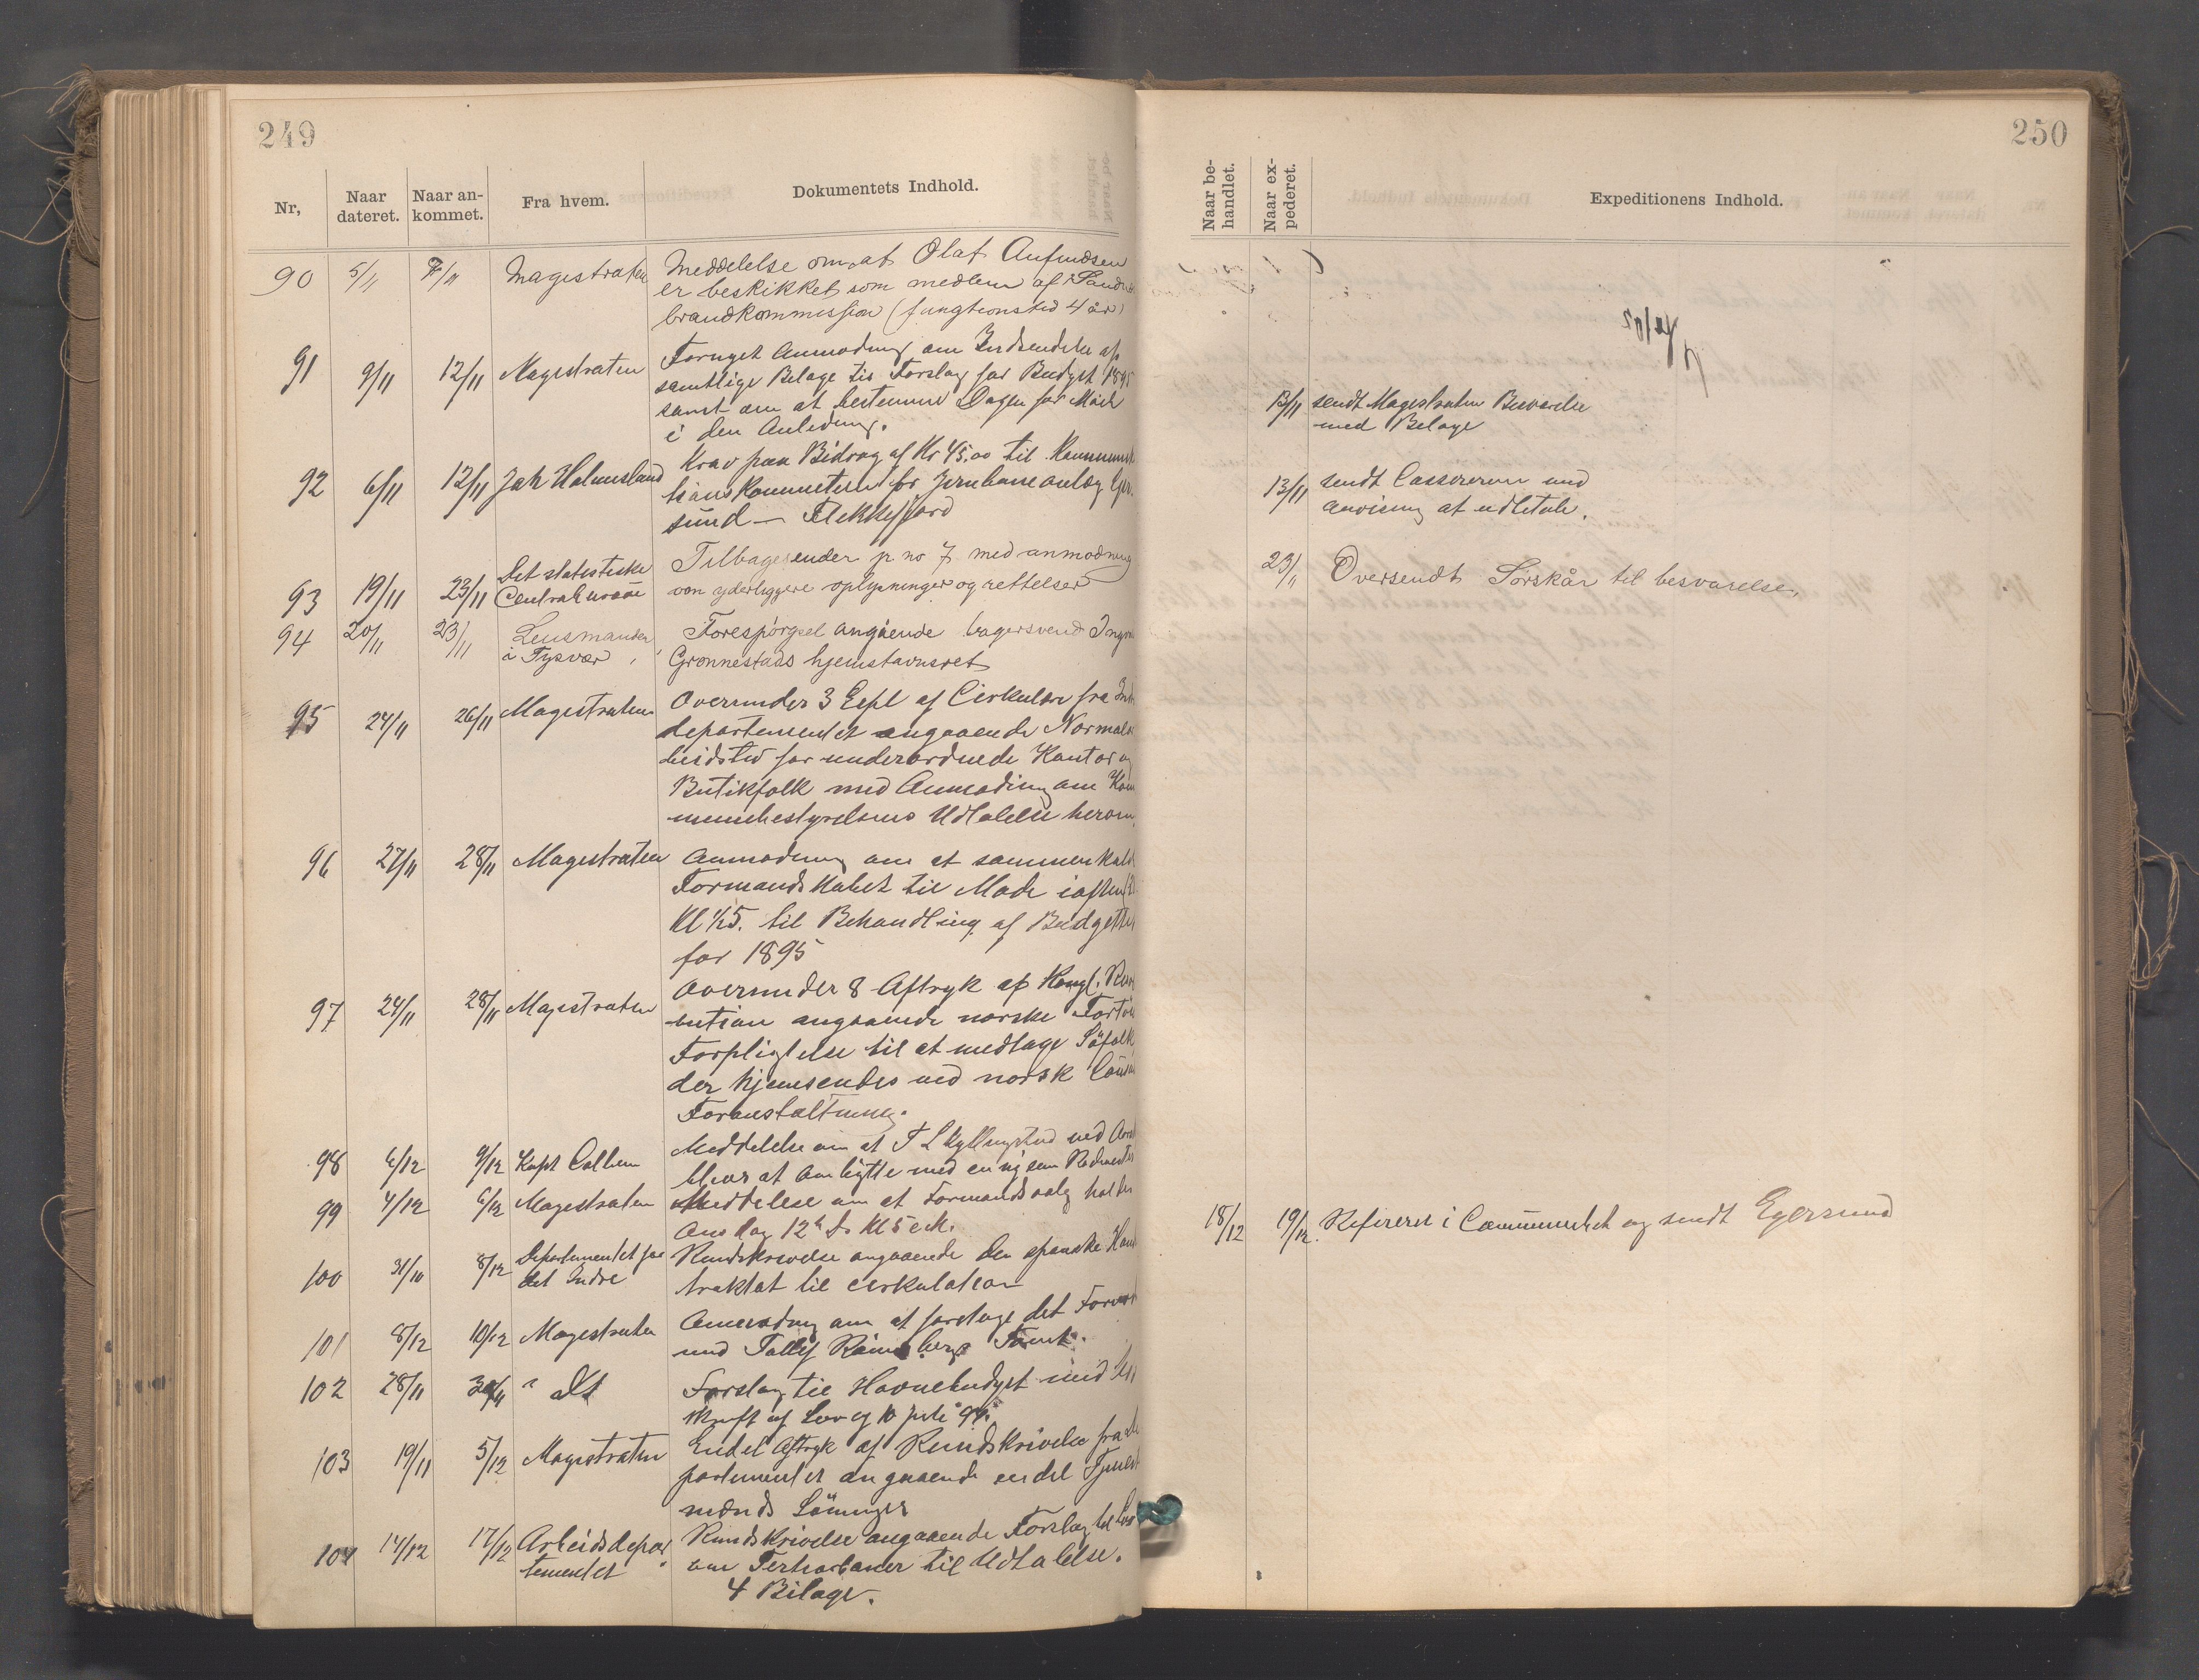 249
Nr,
Naar dateret.
Naar ankommet.
Fra hvem.
Dokumentets Indhold.
90 5/11 7/11 Magistraten Meddelelse om at Olaf Anfindsen
er beskikket som medlem af Sandn
brandkommission (fungtionstid 4 år)
91 9/11 12/11 Magistraten Fornyet Anmodning om Indsendelse af
samtlige Bilage til Forslag for Budget 1895
samt om at bestemme Dagen for Møde
i den Anledning.
92 6/11 12/11 Jak Holmsland Krav paa Bidrag af Kr 45.00 til
for Jernbaneanlæg
sund – Flekkefjord
93 19/11 23/11 Det statestiske Centralbureau Tilbagesender jr no 7 med anmodning
om yderliggere oplysninger og rettelser
94 20/11 23/11 Lensmanden i Tysvær Forespørgsel angående bagersvend
Grønnestads hjemstavnsret
95 24/11 26/11 Magistraten Oversender 3 Expl af Cirkulære fra
departementet angaaende Normalar
beidstid for underordnede Kontor og
Butikfolk med Anmodning om Kom
munebestyrelsens Udtalelse herom.
96 27/11 28/11 Magistraten Anmodning om at sammenkald
Formandskabet til Møde iaften
Kl ½5. til Behandling af Budgettet
for 1895
97 24/11 28/11 Magistraten Oversender 8 Aftryk af Kongl. Reso
lution angaaende norske
Forpligtelse til at medtage Søfolk
der hjemsendes ved norsk
Foranstaltning.
98 6/12 9/12 Kapt Meddelelse om at
at ombytte med en ny
99 4/12 6/12 Magistraten Meddelelse om at Formandsvalg holdes
Onsdag 12te ds Kl 5 eM.
100 31/10 8/12 Departementet for det Indre Rundskrivelse angaaende den spanske
traktat til cirkulation
101 8/12 10/12 Magistraten Anmodning om at foretage det
med
102 28/11 30/11 " Dt Forslag til Havnebudget med
skrift af Lov af 10 juli 94.
103 19/11 5/12 Magistraten Endel Aftryk af Rundskrivelse fra
partementet angaaende endel
mænds Lønninger
104 14/12 17/12 Arbeidsdepartementet Rundskrivelse angaaende Forslag til
om Tertiærbaner til Udtalelse.
4 Bilage.
250
Naar behandlet.
Naar expederet.
Expeditionens Indhold.
13/11 sendt Magistraten Besvarelse
med Bilage
13/11 sendt Cassereren med
anvisning at udbetale.
23/11 Oversendt Sørskår til besvarelse.
18/12 19/12 Refereret i Communebst og sendt Egersund